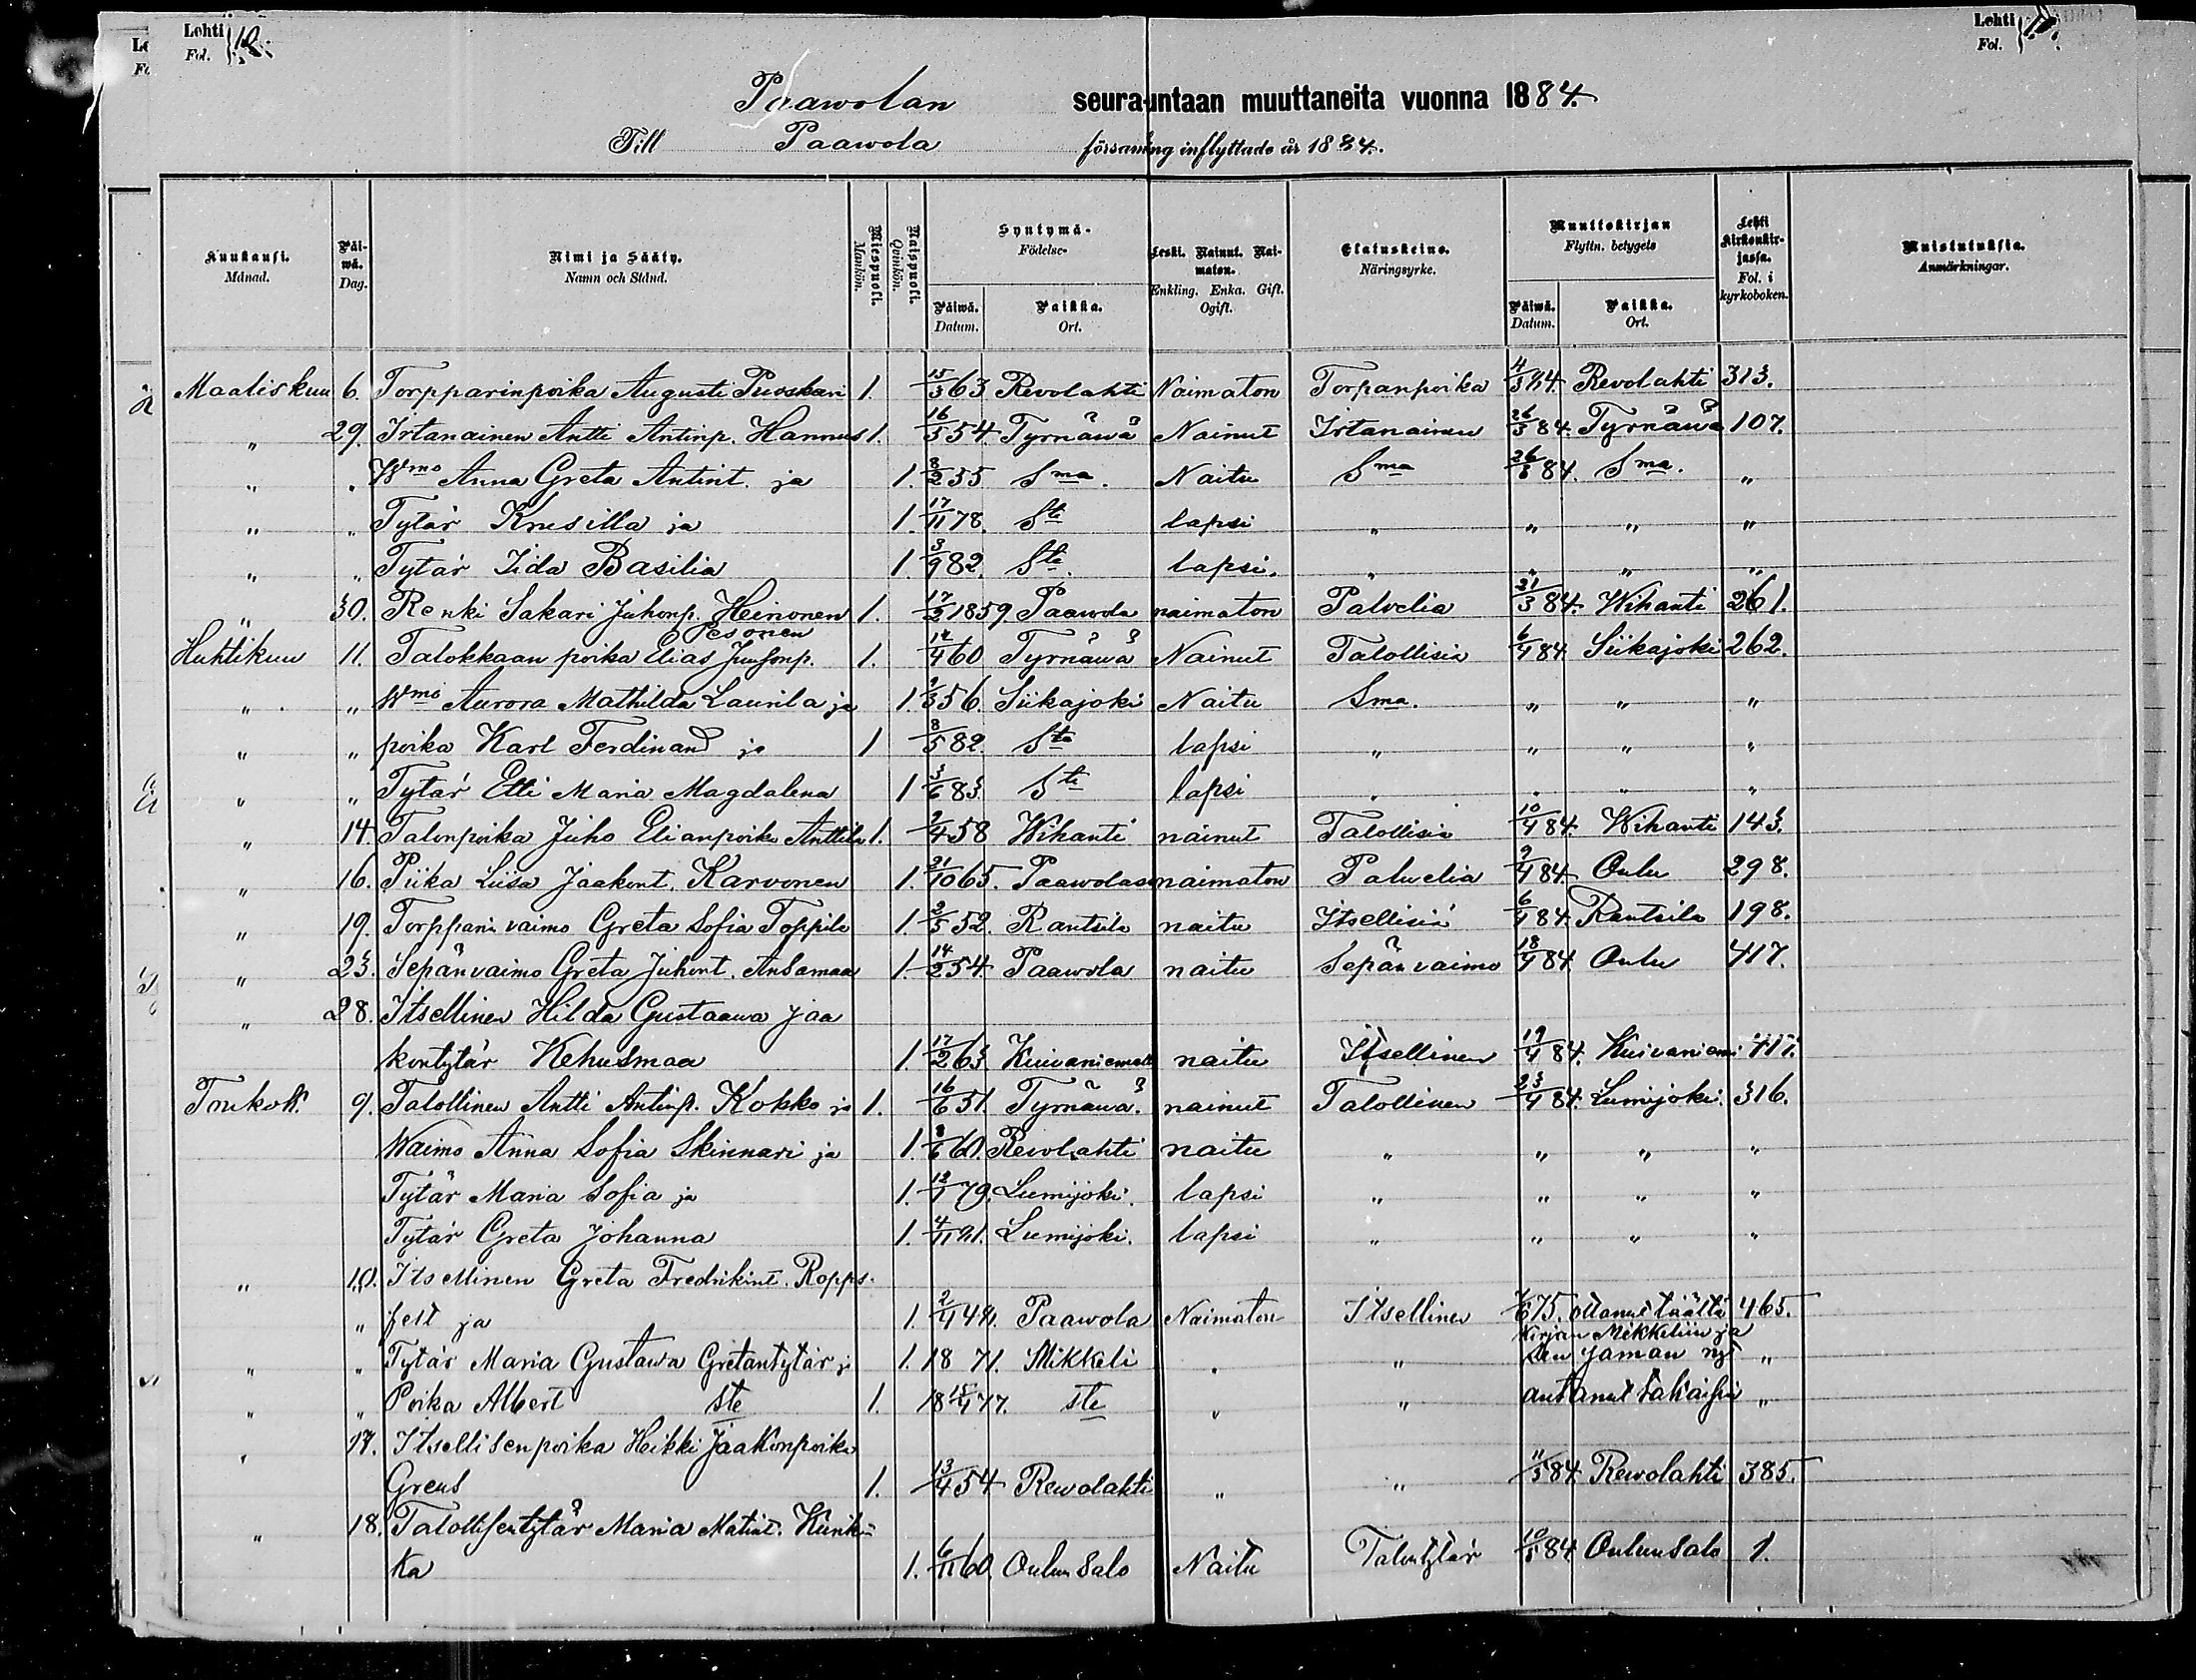 Lohti Fol. 12.
Lehti Fol. 12.
Paawolan seurauntaan muuttaneita vuonna 1884.
Till Paawola församling inflyttade år 1884.
Kuukausi. Månad. Päi-wä. Dag. Nimi ja Sääty. Namn och Stånd. Miespuoli. Mankön. Naispuoli. Qvinkön. Syntymä- Födelse- Päiwä. Datum. Paikka. Ort. Leski. Nainut. Nai-maton. Enkling. Enka. Gift. Ogift. Elatuskeino. Näringsyrke. Muuttokirjan Flyttn. betygets Päiwä. Datum. Paikka. Ort. Lehti kirkonkir-jassa. Fol. i kyrkoboken. Muistutuksia. Anmärkningar.
Maaliskuu 6. Torpparinpoika Augusti Puoskari 1. 15/3 63 Revolahti Naimaton Torpanpoika 4/3 84 Revolahti 313.
" 29. Irtanainen Antti Antinp. Hannus 1. 16/3 54 Tyrnäwä Nainut Irtanainen 26/3 84. Tyrnäwä 107.
" " Wmo Anna Greta Antint. ja 1. 8/2 55 Sma. Naitu Sma 26/3 84. Sma. "
" " Tytär Krusilla ja 1. 17/11 78. Ste lapsi " " " "
" " Tytär Iida Basilia 1. 3/9 82. Ste. lapsi. " " " "
" 30. Renki Sakari Juhonp. Heinonen 1. 17/2 1859 Paawola naimaton Palvelia 21/3 84. Wihanti 261.
Pesonen
Huhtikuu 11. Talokkaan poika Elias Juhonp. 1. 14/4 60 Tyrnäwä Nainut Talollisia 6/4 84 Siikajoki 262.
" " Wmo Aurora Mathilda Laurila ja 1. 9/3 56. Siikajoki Naitu Sma. " " "
" " poika Karl Ferdinand ja 1 8/5 82. Ste lapsi " " " "
" " Tytär Elli Maria Magdalena 1 3/6 83 Ste lapsi " " " "
" 14. Talonpoika Juho Elianpoika Anttila 1. 2/4 58 Wihanti nainut Talollisia 10/4 84. Wihanti 143.
" 16. Piika Liisa Jaakont. Karvonen 1. 21/10 65. Paawolas naimaton Palwelia 9/4 84. Oulu 298.
" 19. Torpparin vaimo Greta Sofia Toppila 1. 2/5 52. Rantsila naitu Itsellisiä 6/4 84. Rantsila 198.
" 23. Sepän vaimo Greta Juhont. Ansamaa 1. 14/2 54. Paawola naitu Sepän vaimo 18/4 84 Oulu 417.
" 28. Itsellinen Hilda Gustaawa Jaa
kontytär Kehusmaa 1. 17/2 63 Kuivaniemellä naitu Itsellinen 19/4 84. Kuivaniemi 417.
Toukok. 9. Talollinen Antti Antinp. Kokko ja 1. 16/6 51. Tyrnäwä. nainut Talollinen 23/4 84. Lumijoki. 316.
Waimo Anna Sofia Skinnari ja 1. 8/6 60. Rewolahti naitu " " " "
Tytär Maria Sofia ja 1. 12/1 79. Lumijoki. lapsi " " " "
Tytär Greta Johanna 1. 4/11 81. Lumijoki. lapsi " " " "
" 10. Itsellinen Greta Fredrikint. Ropps-
" felt ja 1. 2/4 48. Paawola Naimaton Itsellinen 1/6 75. ottanut täältä 465.
kirjan Mikkeliin ja
" " Tytär Maria Gustawa Gretantytär ja 1. 18 71. Mikkeli " " sen saman nyt "
" " Poika Albert ste 1. 18 15/4 77. ste " " antanut takaisin "
" 17. Itsellisenpoika Heikki Jaakonpoika
Greus 1. 13/4 54 Rewolahti " " 11/5 84. Rewolahti 385.
" 18. Talollisentytär Maria Matint. Kinik-
ka 1. 6/11 60. Oulunsalo Naitu Talontytär 10/5 84 Oulunsalo 1.